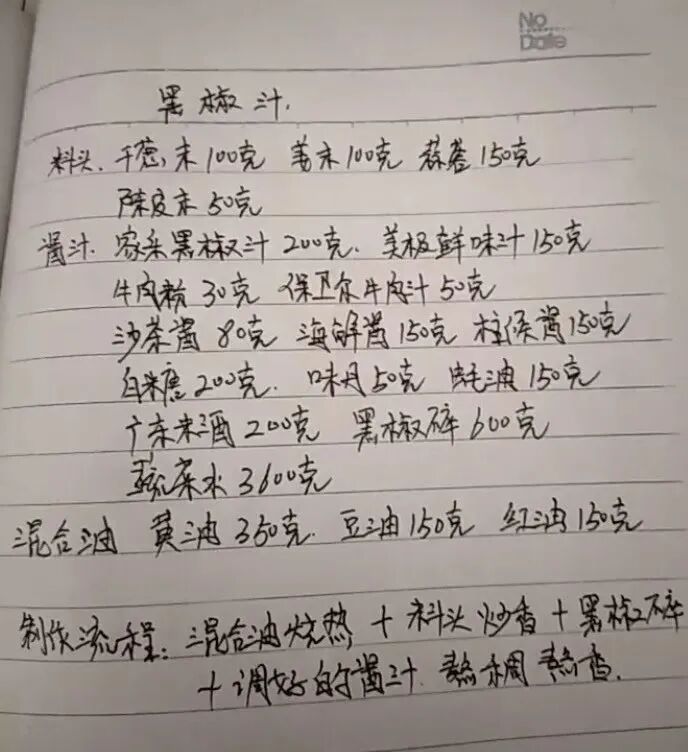 No
Date
黑椒汁.
料头. 干葱末100克 姜末100克 蒜蓉150克
陈皮末50克
酱汁. 家乐黑椒汁200克. 美极鲜味汁150克
牛肉粉30克 保卫尔牛肉汁50克
沙茶酱80克 海鲜酱150克 柱候酱150克
白糖200克. 味丹50克 蚝油150克
广东米酒200克 黑椒碎600克
蔬菜水3600克
混合油 黄油350克. 豆油150克 红油150克
制作流程: 混合油烧热 + 料头炒香 + 黑椒碎
+ 调好的酱汁. 熬稠 熬香.